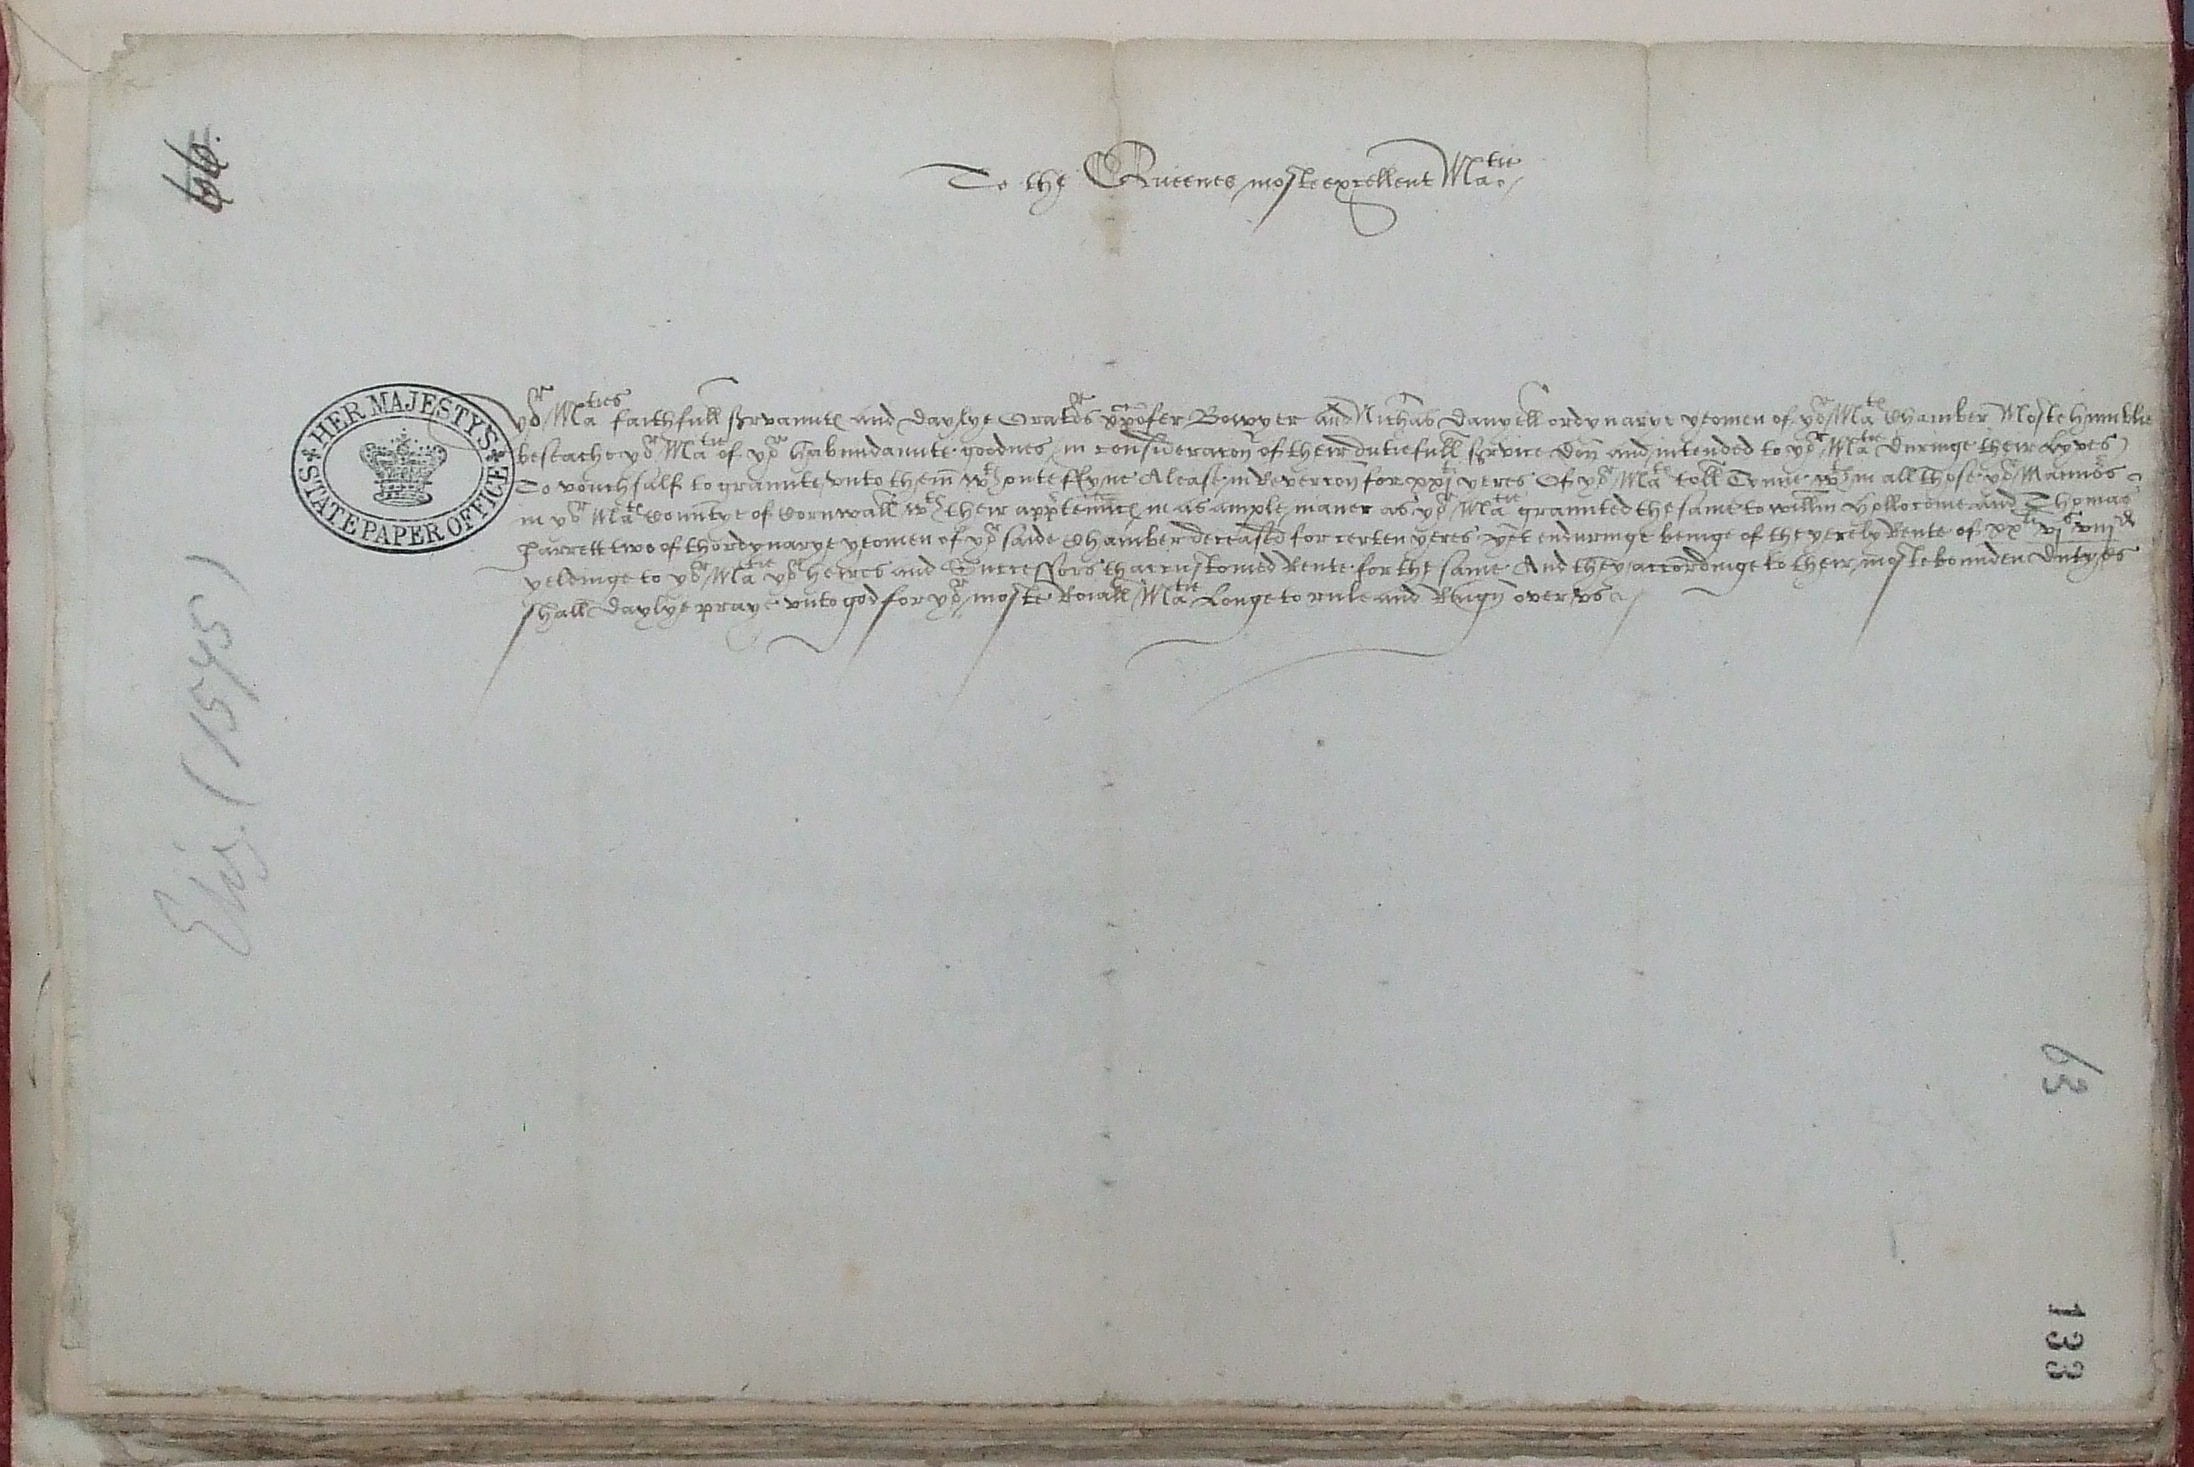 66.
To the Queenes moste excellent Matie
HER MAJESTY'S STATE PAPER OFFICE
yor Maties faithfull servantes and daylye Orators xpofer Bowyer and Nichas Danyell ordynarye yeomen of yor Mats Chamber Moste humblie
beseache yor Matie of yor habundaunte goodnes, in consideracon of their dutiefull service don and intended to yor Matie duringe their Lyves
To vouchsalf to graunte vnto them wthoute ffyne A lease in Revercon for xxj yeres Of yor Mats toll Tynne wthin all those yor Mannors
in yor Mats Countye of Cornwall wth their apptennces in as ample maner as yor Matie graunted the same to willm Hollocome and Thomas
Parrett two of thordynarye yeomen of yor saide Chamber deceased for certen yeres yet enduringe beinge of the yerely Rente of xxli vjs viijd
yeldinge to yor Matie yor heires and Successors thaccustomed Rente for the same And they accordinge to their moste bounden dutyes
shall daylye praye vnto god for yor moste Roiall Matie Longe to rule and Reign over vs
Eliz. (1595)
63
133